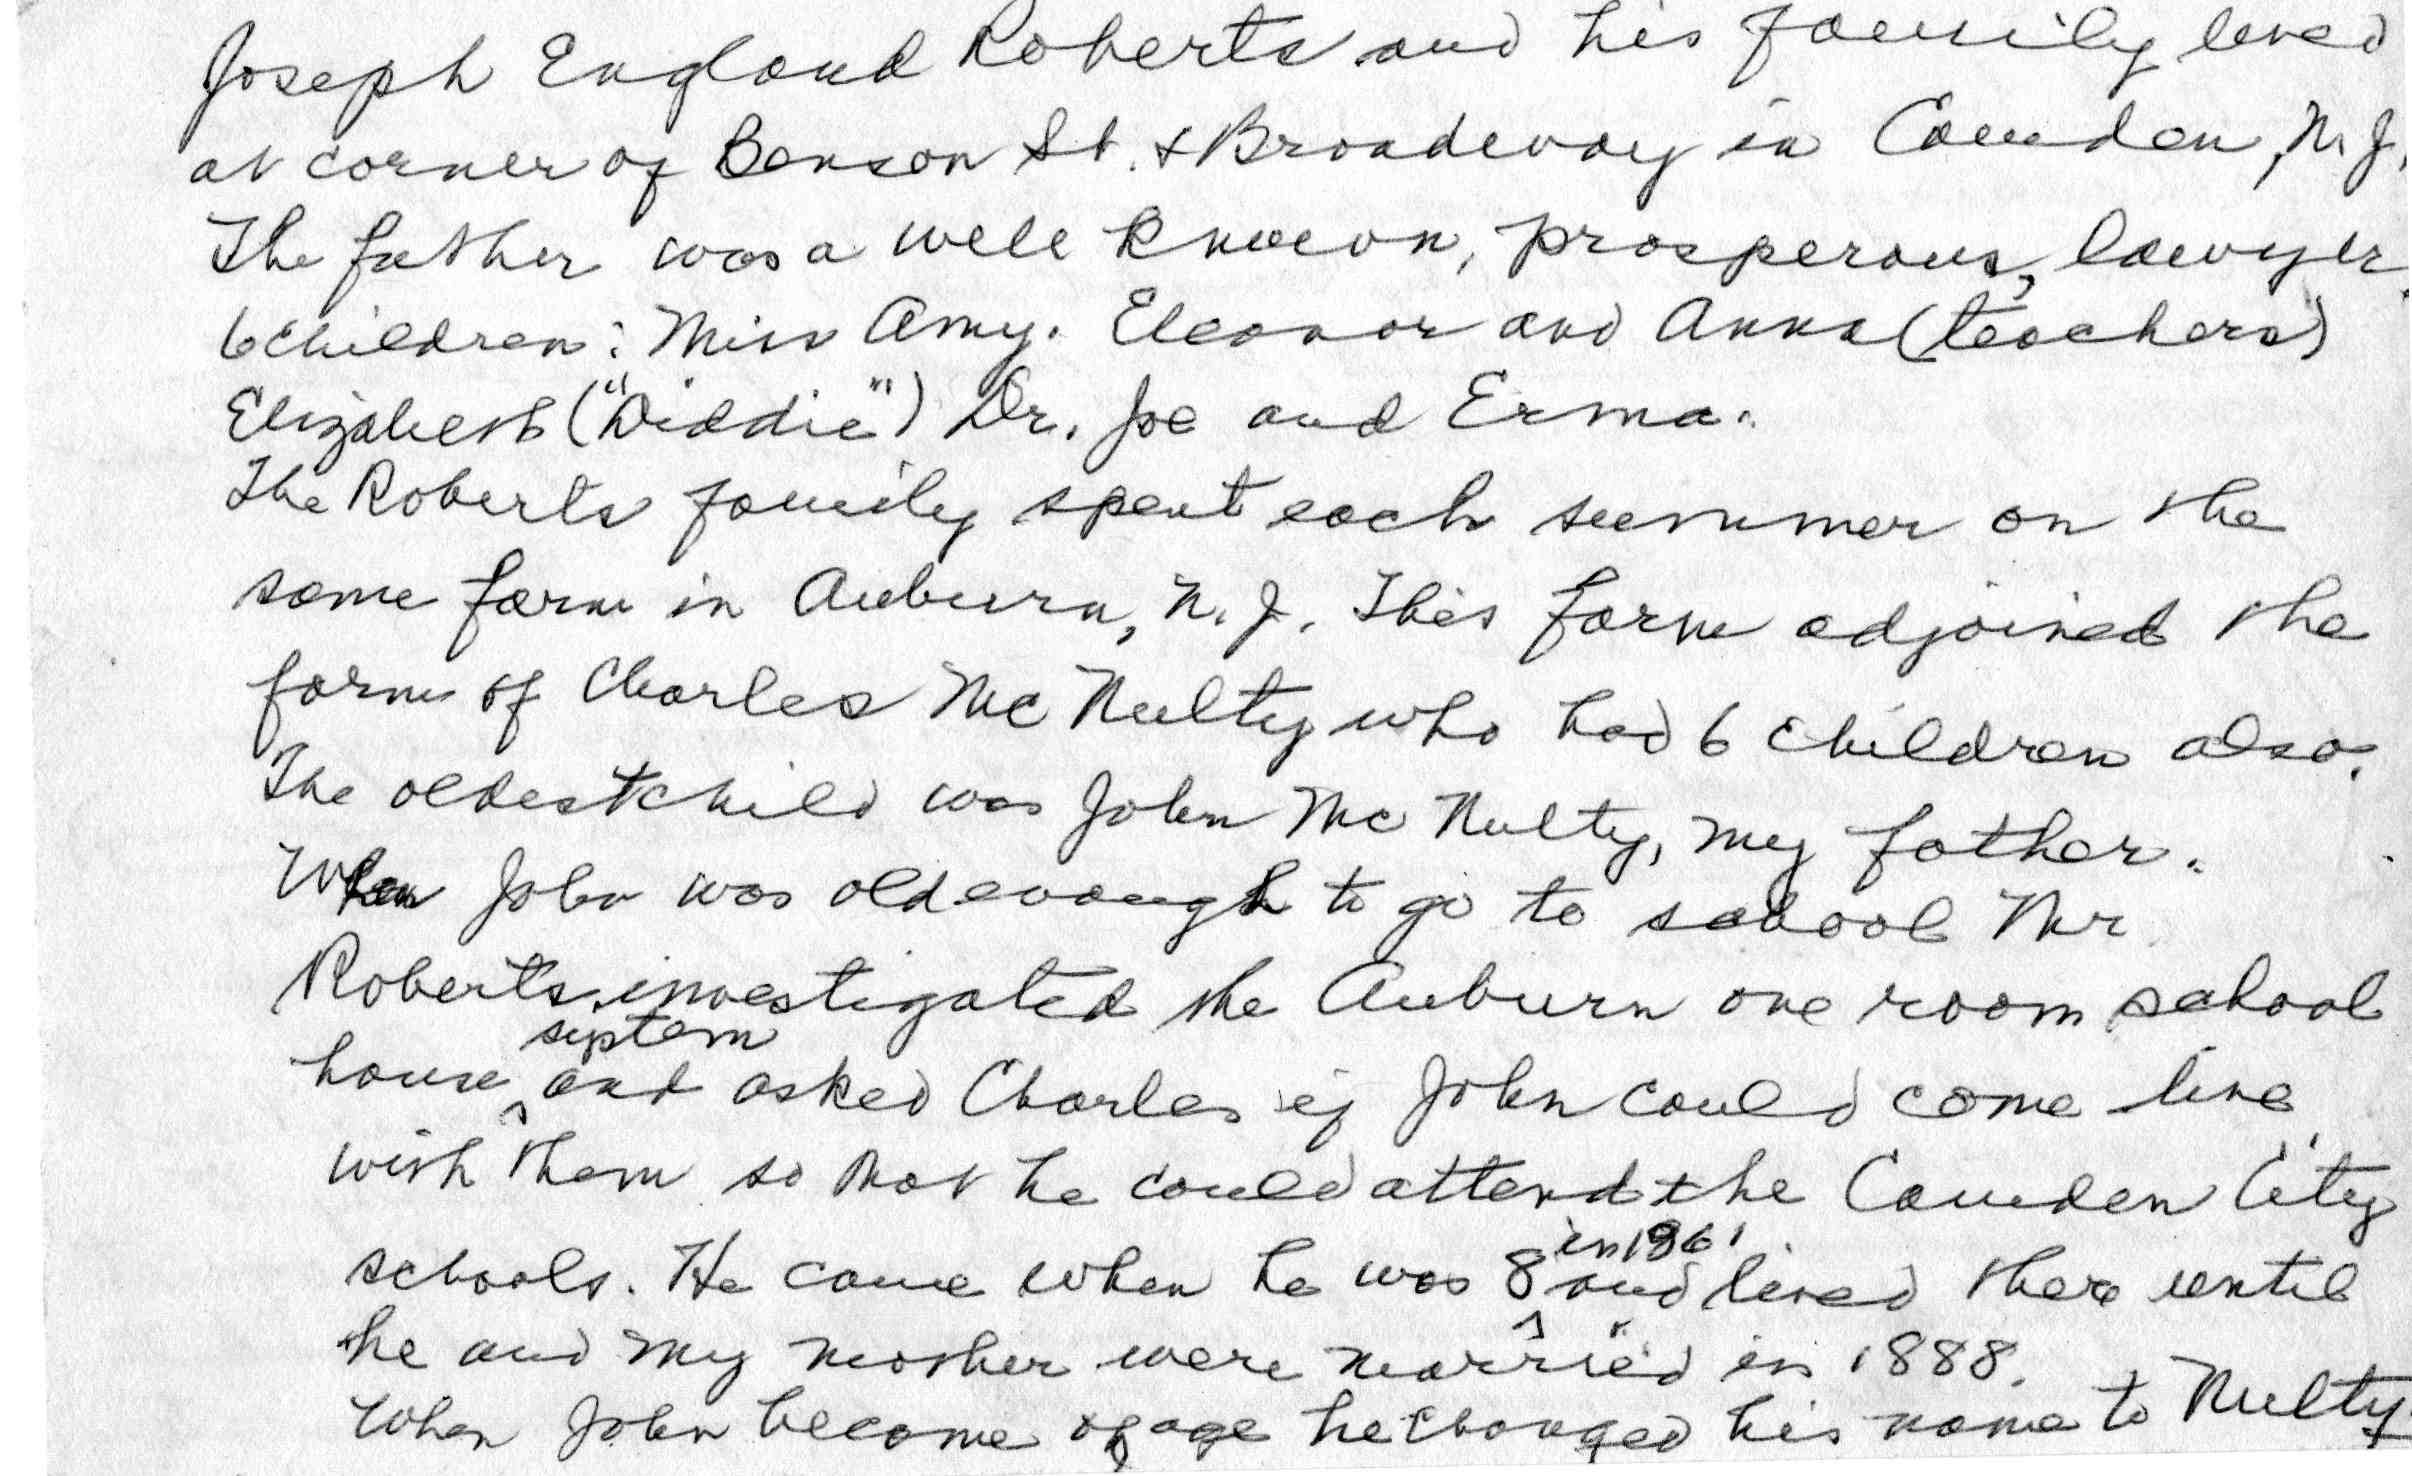 Joseph England Roberts and his family lived
at corner of Benson St. & Broadway in Camden, N.J.
The father was a well known, prosperous, lawyer.
6 children: Miss Amy. Eleanor and Anna (teachers)
Elizabeth ("Diddie") Dr. Joe and Erma.
The Roberts family spent each summer on the
same farm in Auburn, N.J. This farm adjoined the
farm of Charles McNulty who had 6 children also.
The oldest child was John McNulty, my father.
When John was old enough to go to school Mr
Roberts investigated the Auburn one room school
system
house ^ and asked Charles if John could come live
with them so that he could attend the Camden City
in 1861
schools. He came when he was 8 ^ and lived there until
he and my mother were married in 1888.
When John become of age he changed his name to Nulty.